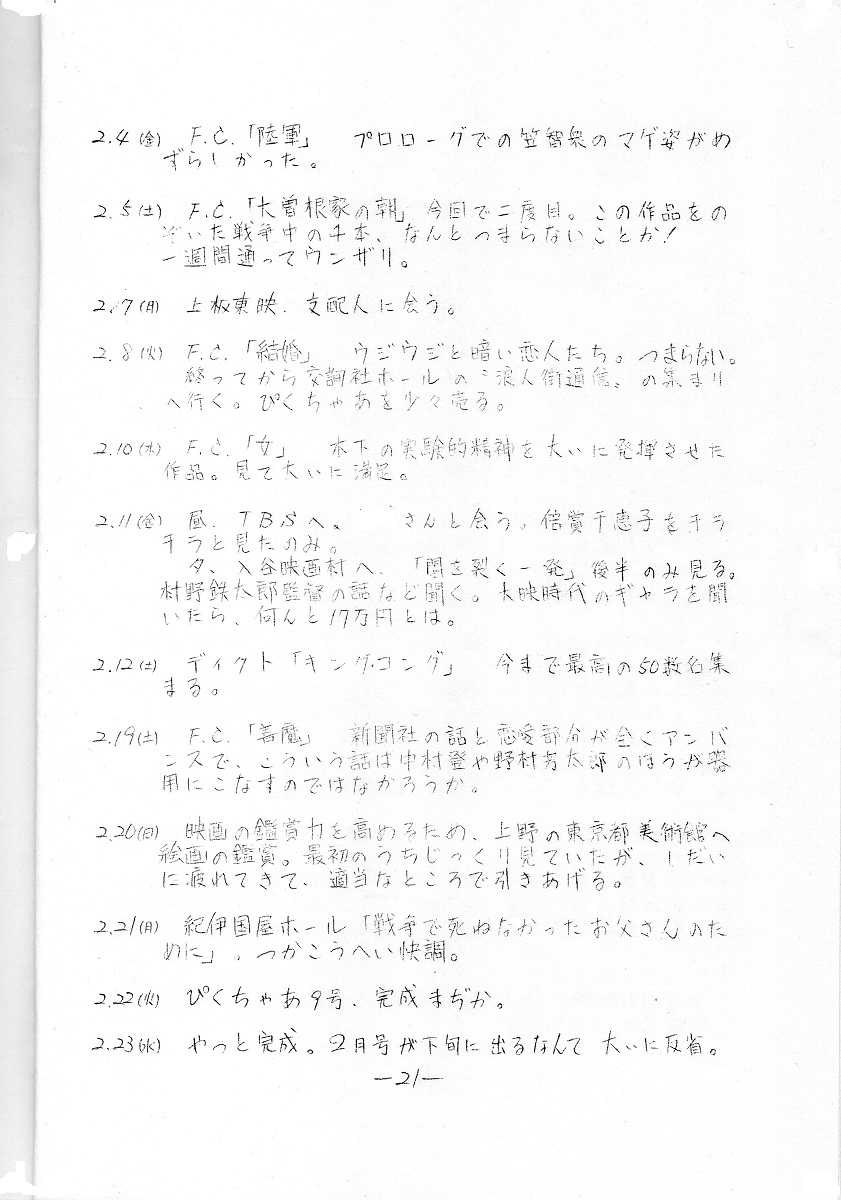 2.4(金) F.C.「陸軍」 プロローグでの笠智衆のマゲ姿がめ
ずらしかった。
2.5(土) F.C.「大曽根家の朝」今回で二度目。この作品をの
ぞいた戦争中の4本、なんとつまらないことか!
一週間通ってウンザリ。
2.7(月) 上板東映、支配人に会う。
2.8(火) F.C.「結婚」 ウジウジと暗い恋人たち。つまらない。
終ってから交詢社ホールの"浪人街通信"の集まり
へ行く。ぴくちゃあを少々売る。
2.10(木) F.C.「女」 木下の実験的精神を大いに発揮させた
作品。見て大いに満足。
2.11(金) 昼、TBSへ。 さんと会う。倍賞千恵子をチラ
チラと見たのみ。
夕、入谷映画村へ、「闇を裂く一発」後半のみ見る。
村野鉄太郎監督の話など聞く。大映時代のギャラを聞
いたら、何んと17万円とは。
2.12(土) ディクト「キング・コング」 今まで最高の50数名集
まる。
2.19(土) F.C.「善魔」 新聞社の話と恋愛部分が全くアンバ
ンスで、こういう話は中村登や野村芳太郎のほうが器
用にこなすのではなかろうか。
2.20(日) 映画の鑑賞力を高めるため、上野の東京都美術館へ
絵画の鑑賞。最初のうちじっくり見ていたが、しだい
に疲れてきて、適当なところで引きあげる。
2.21(月) 紀伊国屋ホール「戦争で死ねなかったお父さんのた
めに」、つかこうへい快調。
2.22(火) ぴくちゃあ9号、完成まぢか。
2.23(水) やっと完成。2月号が下旬に出るなんて 大いに反省。
—21—